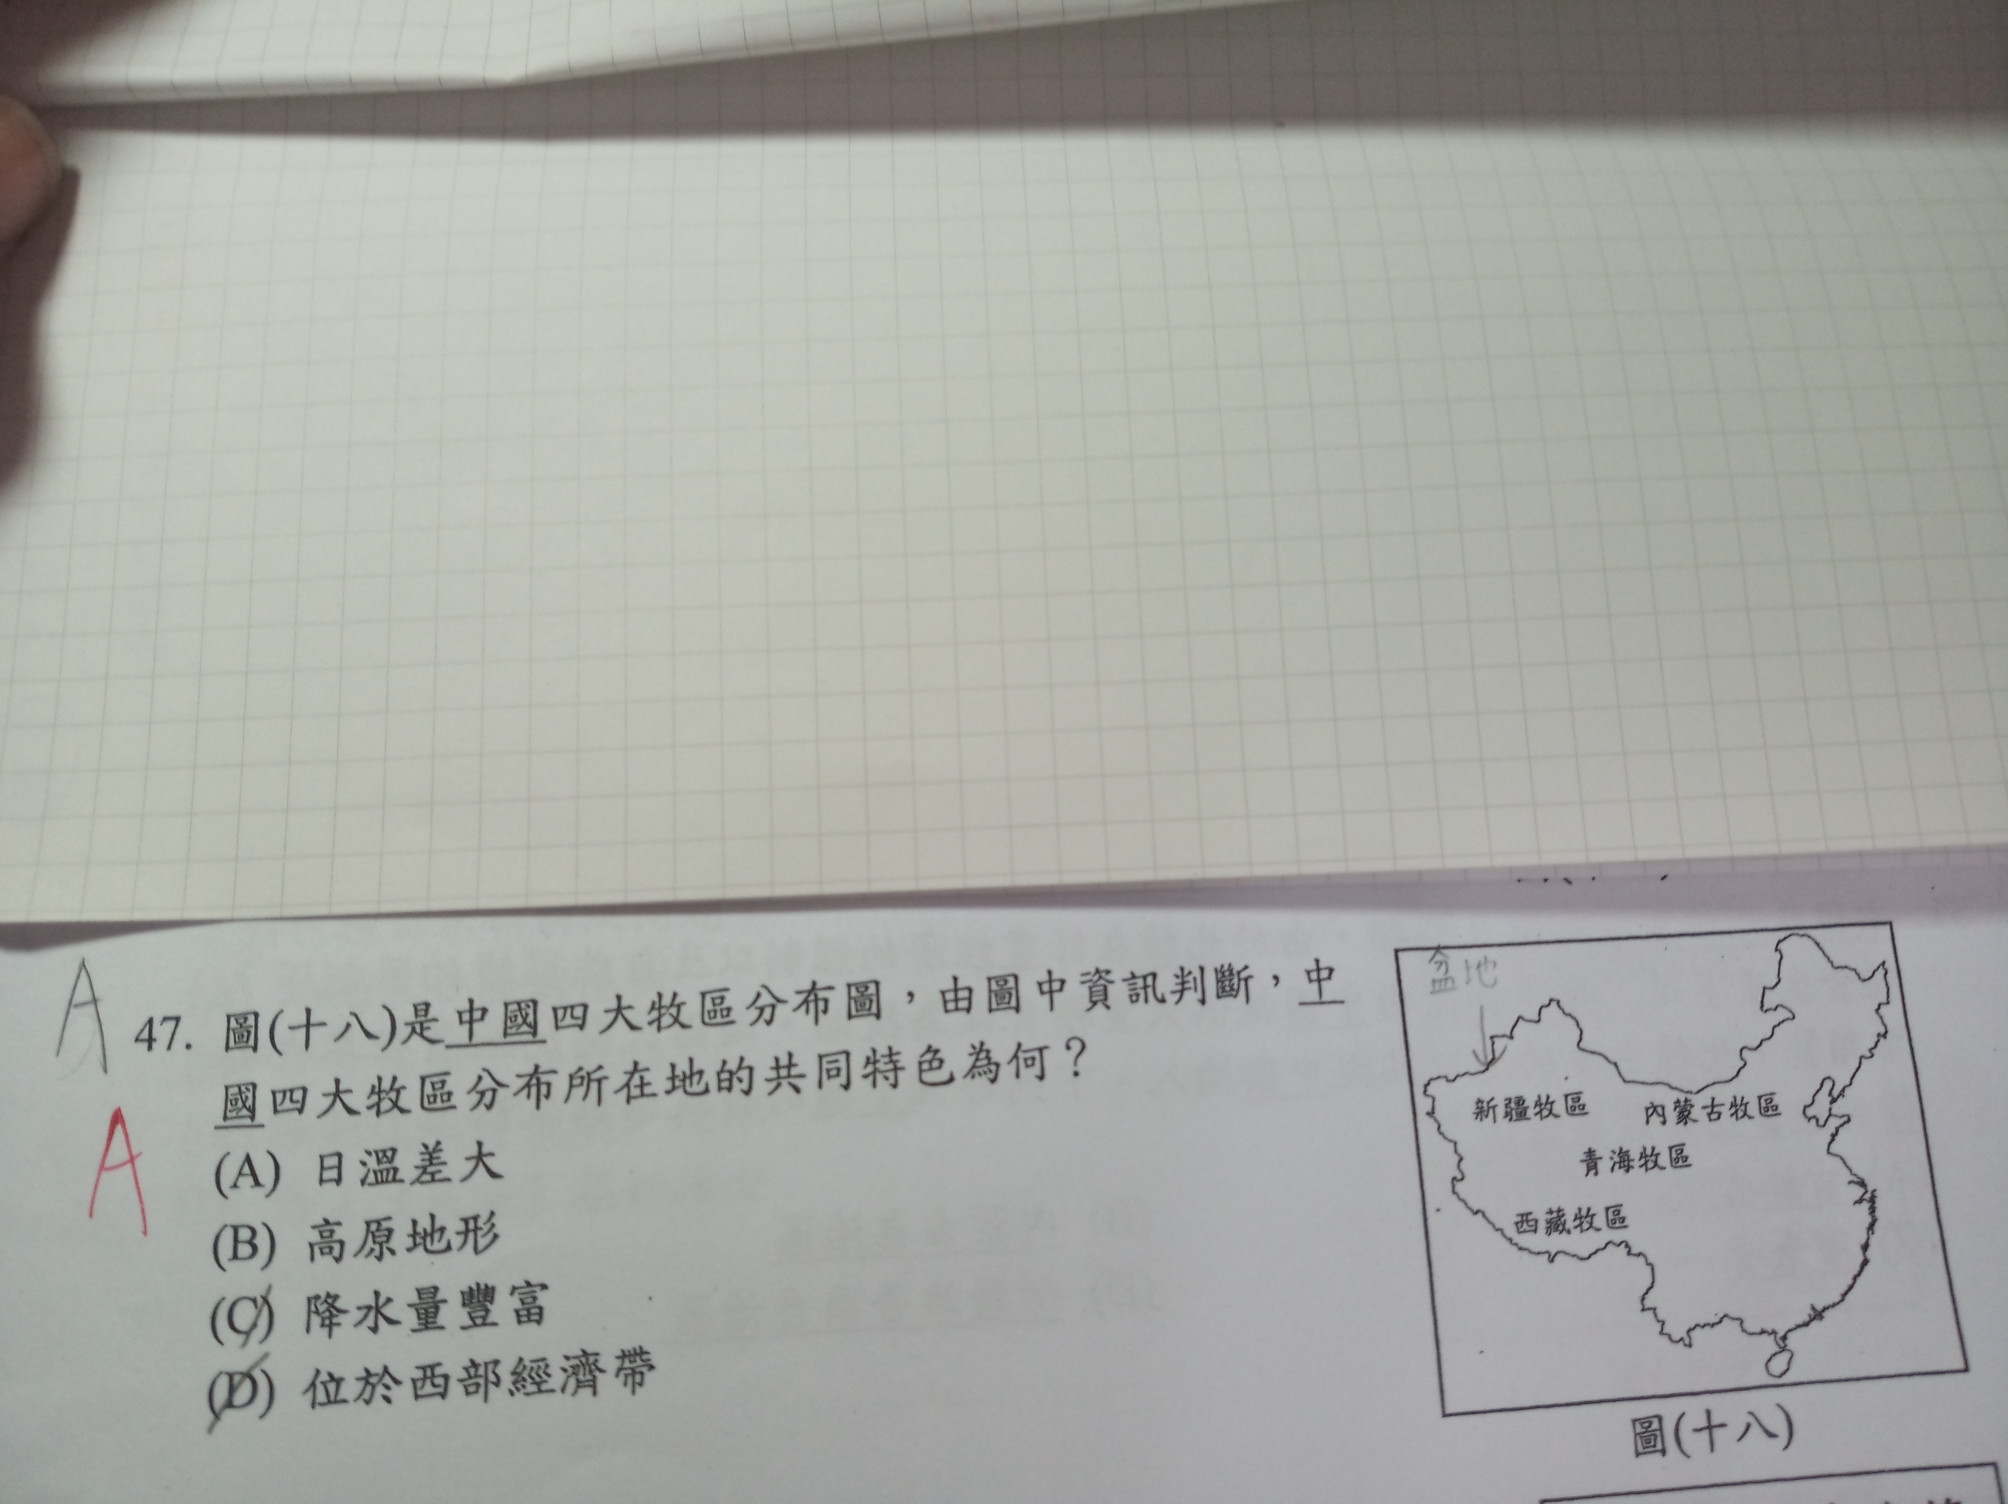 A
47. 圖(十八)是中國四大牧區分布圖，由圖中資訊判斷，中
國四大牧區分布所在地的共同特色為何？
A
(A) 日溫差大
(B) 高原地形
(C) 降水量豐富
(D) 位於西部經濟帶
盆地
新疆牧區
內蒙古牧區
青海牧區
西藏牧區
圖(十八)